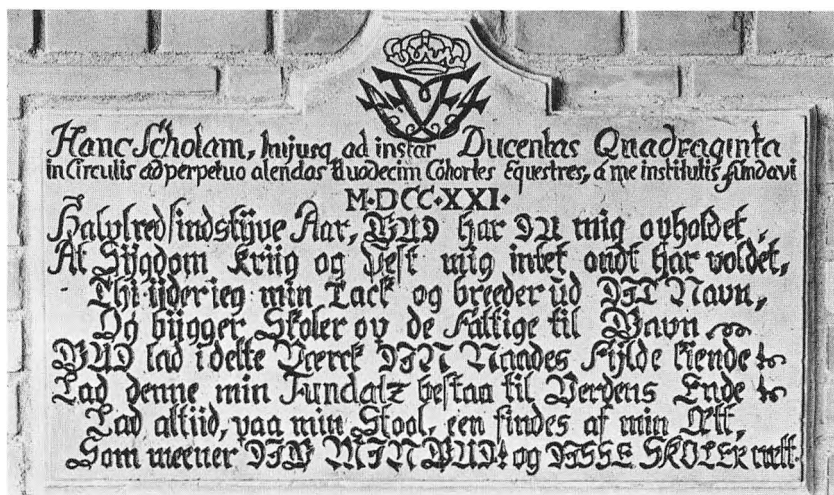 Hanc Scholam, hujusq ad instar Ducentas Quadraginta
in Circulis ad perpetuo alendas Duodecim Cohortes Equestres, a me institutis fundavi
M·DCC·XXI·
Halvfredsindstÿve Aar, GUD har DU mig opholdet,
At Sÿgdom Kriig og Pest mig intet ondt har voldet,
Thi ÿder ieg min Tack og breeder ud DIT Navn,
Og bÿgger Skoler op de Fattige til Gavn
GUD lad i dette Værck DIN Naades Fÿlde kiende
Lad denne min Fundatz bestaa til Verdens Ende
Lad altiid, paa min Stool, een findes af min Ætt,
Som meener DIG MIN GUD! og DISSE SKOLER rætt.